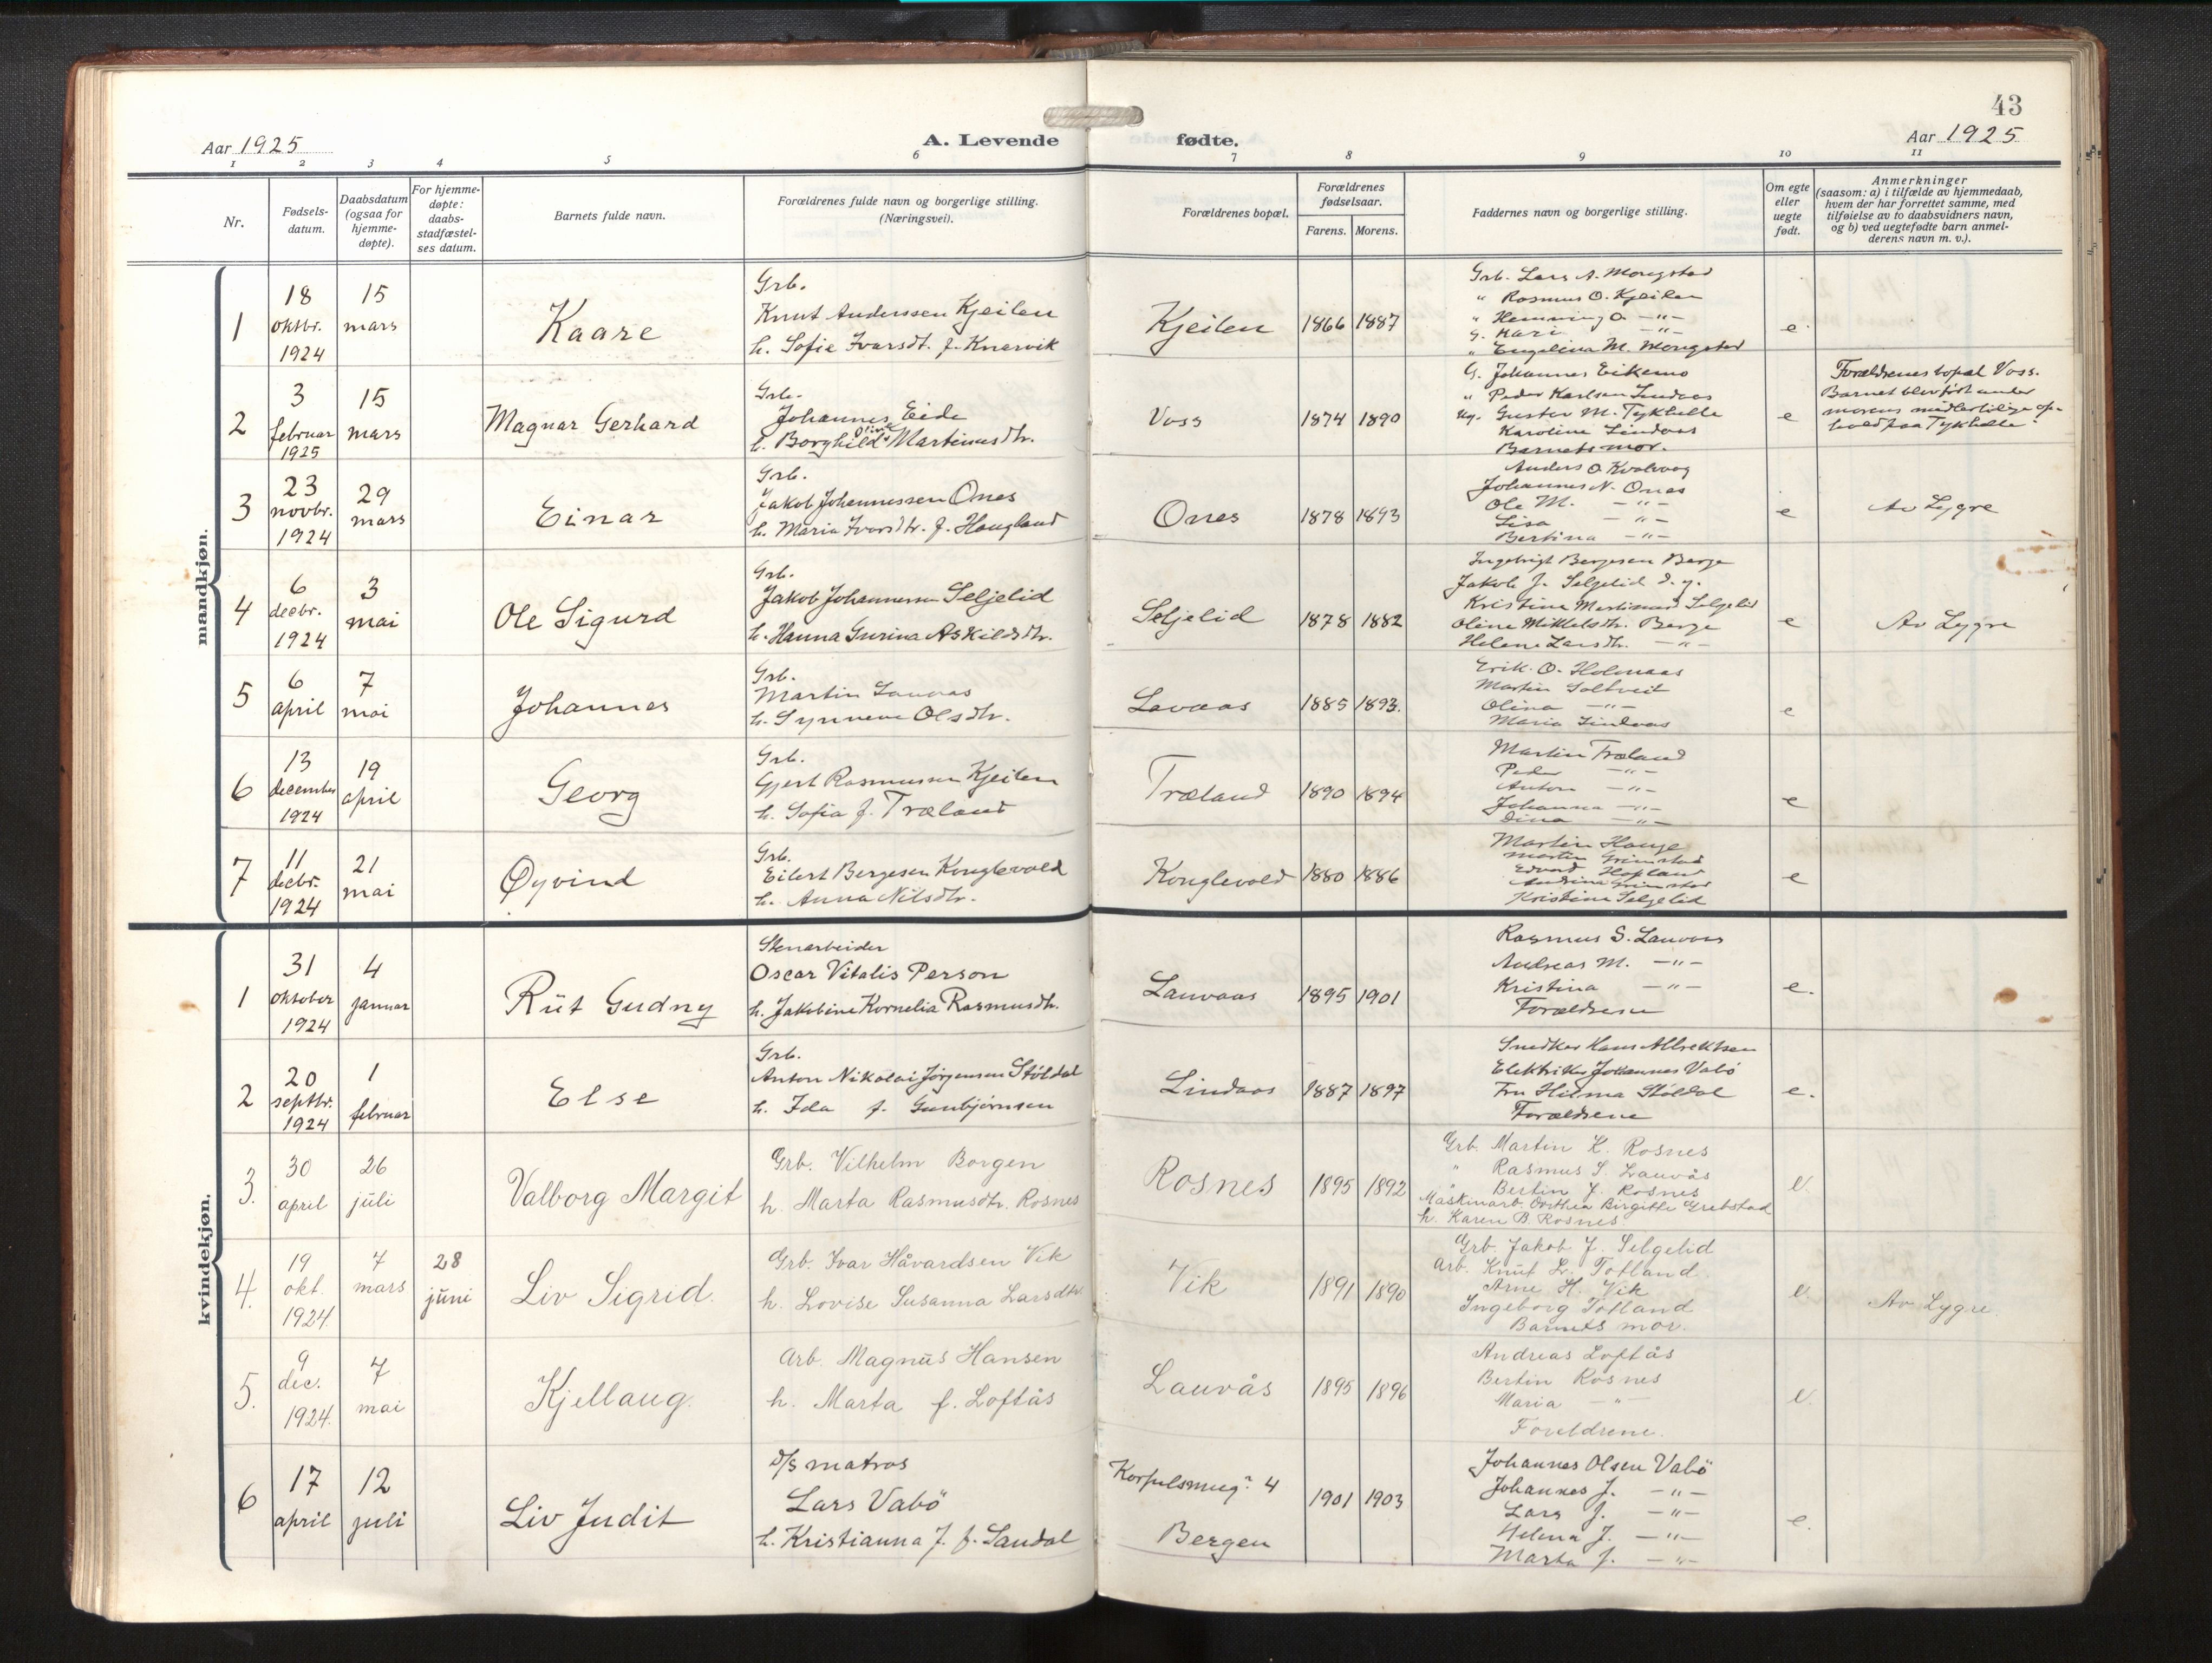 43
Aar 1925
A. Levende
fødte.
Aar 1925
1 2 3 4 5 6 7 8 9 10 11
Nr.
Fødsels-
datum.
Daabsdatum
(ogsaa for
hjemme-
døpte).
For hjemme-
døpte:
daabs-
stadfæstel-
ses datum.
Barnets fulde navn.
Forældrenes fulde navn og borgerlige stilling.
(Næringsvei).
Forældrenes bopæl.
Forældrenes
fødselsaar.
Farens. Morens.
Faddernes navn og borgerlige stilling.
Om egte
eller
uegte
født.
Anmerkninger
(saasom: a) i tilfælde av hjemmedaab,
hvem der har forrettet samme, med
tilføielse av to daabsvidners navn,
og b) ved uegtefødte barn anmel-
derens navn m. v.).
mandkjøn.
1
18
oktbr.
1924
15
mars
Kaare
Grb.
Knut Anderssen Kjeilen
h. Sofie Ivarsdt. f. Knarvik
Kjeilen
1866 1887
Grb. Lars A. Mongstad
" Rasmus O. Kjeilen
" Hemming O. -"-
G. Kari -"-
" Engelina M. Mongstad
e.
2
3
februar
1925
15
mars
Magnar Gerhard
Grb.
Johannes Eide
h. Borghild Olina Martinusdtr.
Voss
1874 1890
G. Johannes Eikemo
" Peder Karlsen Lindaas
Ug. Gustav M. Tykhelle
Karoline Lindaas
Barnets mor.
e
Forældrenes bopæl Voss.
Barnet blev født under
morens midlertidige op-
hold paa Tykhelle.
3
23
novbr.
1924
29
mars
Einar
Grb.
Jakob Johannessen Ones
h. Maria Ivarsdtr. f. Haugland
Ones
1878 1893
Anders O. Kvalvaag
Johannes N. Ones
Ole M. -"-
Lisa -"-
Bertina -"-
e
Av Lygre
4
6
decbr.
1924
3
mai
Ole Sigurd
Grb.
Jakob Johannessen Seljelid
h. Hanna Gurina Askildsdtr.
Seljelid
1878 1882
Ingebrigt Bergesen Berge
Jakob J. Selgelid d. y.
Kristina Martinusd. Selgelid
Oline Mikkelsdtr. Berge
Helene Larsdtr. -"-
e
Av Lygre
5
6
april
7
mai
Johannes
Grb.
Martin Lauvaas
h. Synneve Olsdtr.
Lavaas
1885 1893.
Erik O. Holmaas
Martin Soltveit
Olina -"-
Maria Lindaas
e
6
13
december
1924
19
april
Georg
Grb.
Gjert Rasmussen Kjeilen
h. Sofia f. Træland
Træland
1890 1894
Martin Træland
Peder -"-
Anton -"-
Johanna -"-
Dina -"-
e
7
11
decbr.
1924
21
mai
Øyvind
Grb.
Eilert Bergesen Konglevold
h. Anna Nilsdtr.
Konglevold
1880 1886
Martin Hauge
Martin Grimstad
Edvard Hopland
Andrina Grimstad
Kristina Selgelid
e
kvindekjøn.
1
31
oktober
1924
4
januar
Rut Gudny
Stenarbeider
Oscar Vitalis Person
h. Jakobine Kornelia Rasmusdtr.
Lauvaas
1895 1901
Rasmus S. Lauvaas
Andreas M. -"-
Kristina -"-
Forældrene
e.
2
20
septbr.
1924
1
februar
Else
Grb.
Anton Nikolai Jørgensen Støldal
h. Ida f. Gunbjørnsen
Lindaas
1887 1897
Snedker Hans Albrektsen
Elektriker Johannes Vabö
Fru Hilma Støldal
Forældrene
e.
3.
30
april
26
juli
Valborg Margit
Grb. Vilhelm Borgen
h. Marta Rasmusdtr. Rosnes
Rosnes
1895 1892
Grb. Martin K. Rosnes
" Rasmus S. Lauvås
" Bertin J. Rosnes
Maskinarb. Dorthea Birgitte Grebstad
h. Karen B. Rosnes
e.
4.
19
okt.
1924.
7
mars
28
juni
Liv Sigrid.
Grb. Ivar Håvardsen Vik
h. Lovise Susanna Larsdtr.
Vik
1891 1890
Grb. Jakob J. Selgelid
Arb. Knut L. Totland.
Arne H. Vik
Ingeborg Totland
Barnets mor.
e.
Av Lygre
5.
9
dec.
1924.
7
mai
Kjellaug.
Arb. Magnus Hansen
h. Marta f. Loftås
Lauvås
1895 1896
Andreas Loftås
Bertin Rosnes
Maria -"-
Foreldrene.
e.
6
17
april
12
juli
Liv Judit
D/S matros
Lars Vabö
h. Kristianna J. f. Sandal
4
Bergen
1901 1903
Johannes Olsen Vabö
Johannes J. -"-
Lars J. -"-
Helena J. -"-
Marta J. -"-
e.